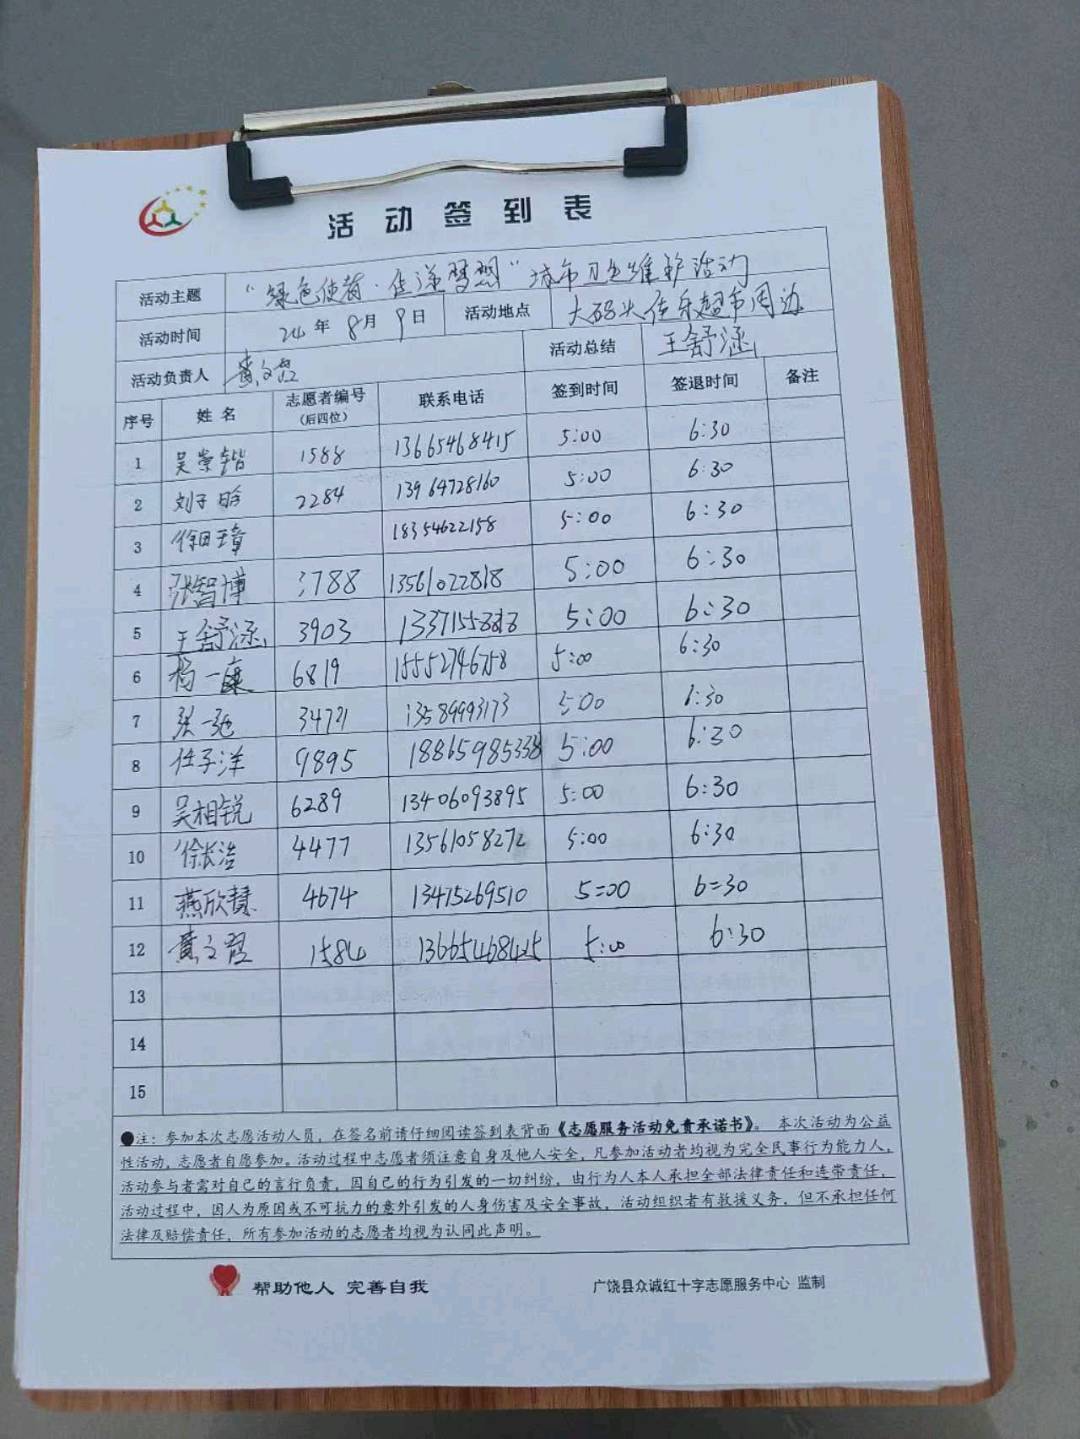 活动签到表
活动主题 "绿色使者·传递梦想"城市卫生维护活动
活动时间 24年8月9日 活动地点 大码头佳乐超市周边
活动负责人 黄文霞 活动总结 王舒涵
序号 姓名 志愿者编号(后四位) 联系电话 签到时间 签退时间 备注
1 吴崇锴 1588 13665468415 5:00 6:30
2 刘子晗 2284 13964728160 5:00 6:30
3 徐田璋 18354622158 5:00 6:30
4 张智博 3788 13561022818 5:00 6:30
5 王舒涵 3903 5:00 6:30
6 杨一康 6819 15552746758 5:00 6:30
7 张一弛 13589993173 5:00 6:30
8 任子洋 9895 18865985338 5:00 6:30
9 吴相锐 6289 13406093895 5:00 6:30
10 徐长浩 4477 13561058272 5:00 6:30
11 燕欣慧 4674 13475269510 5=00 6=30
12 黄文霞 1584 13665468415 5:00 6:30
13
14
15
●注：参加本次志愿活动人员，在签名前请仔细阅读签到表背面《志愿服务活动免责承诺书》。本次活动为公益
性活动，志愿者自愿参加。活动过程中志愿者须注意自身及他人安全，凡参加活动者均视为完全民事行为能力人，
活动参与者需对自己的言行负责，因自己的行为引发的一切纠纷，由行为人本人承担全部法律责任和连带责任，
活动过程中，因人为原因或不可抗力的意外引发的人身伤害及安全事故，活动组织者有救援义务，但不承担任何
法律及赔偿责任，所有参加活动的志愿者均视为认同此声明。
帮助他人 完善自我 广饶县众诚红十字志愿服务中心 监制